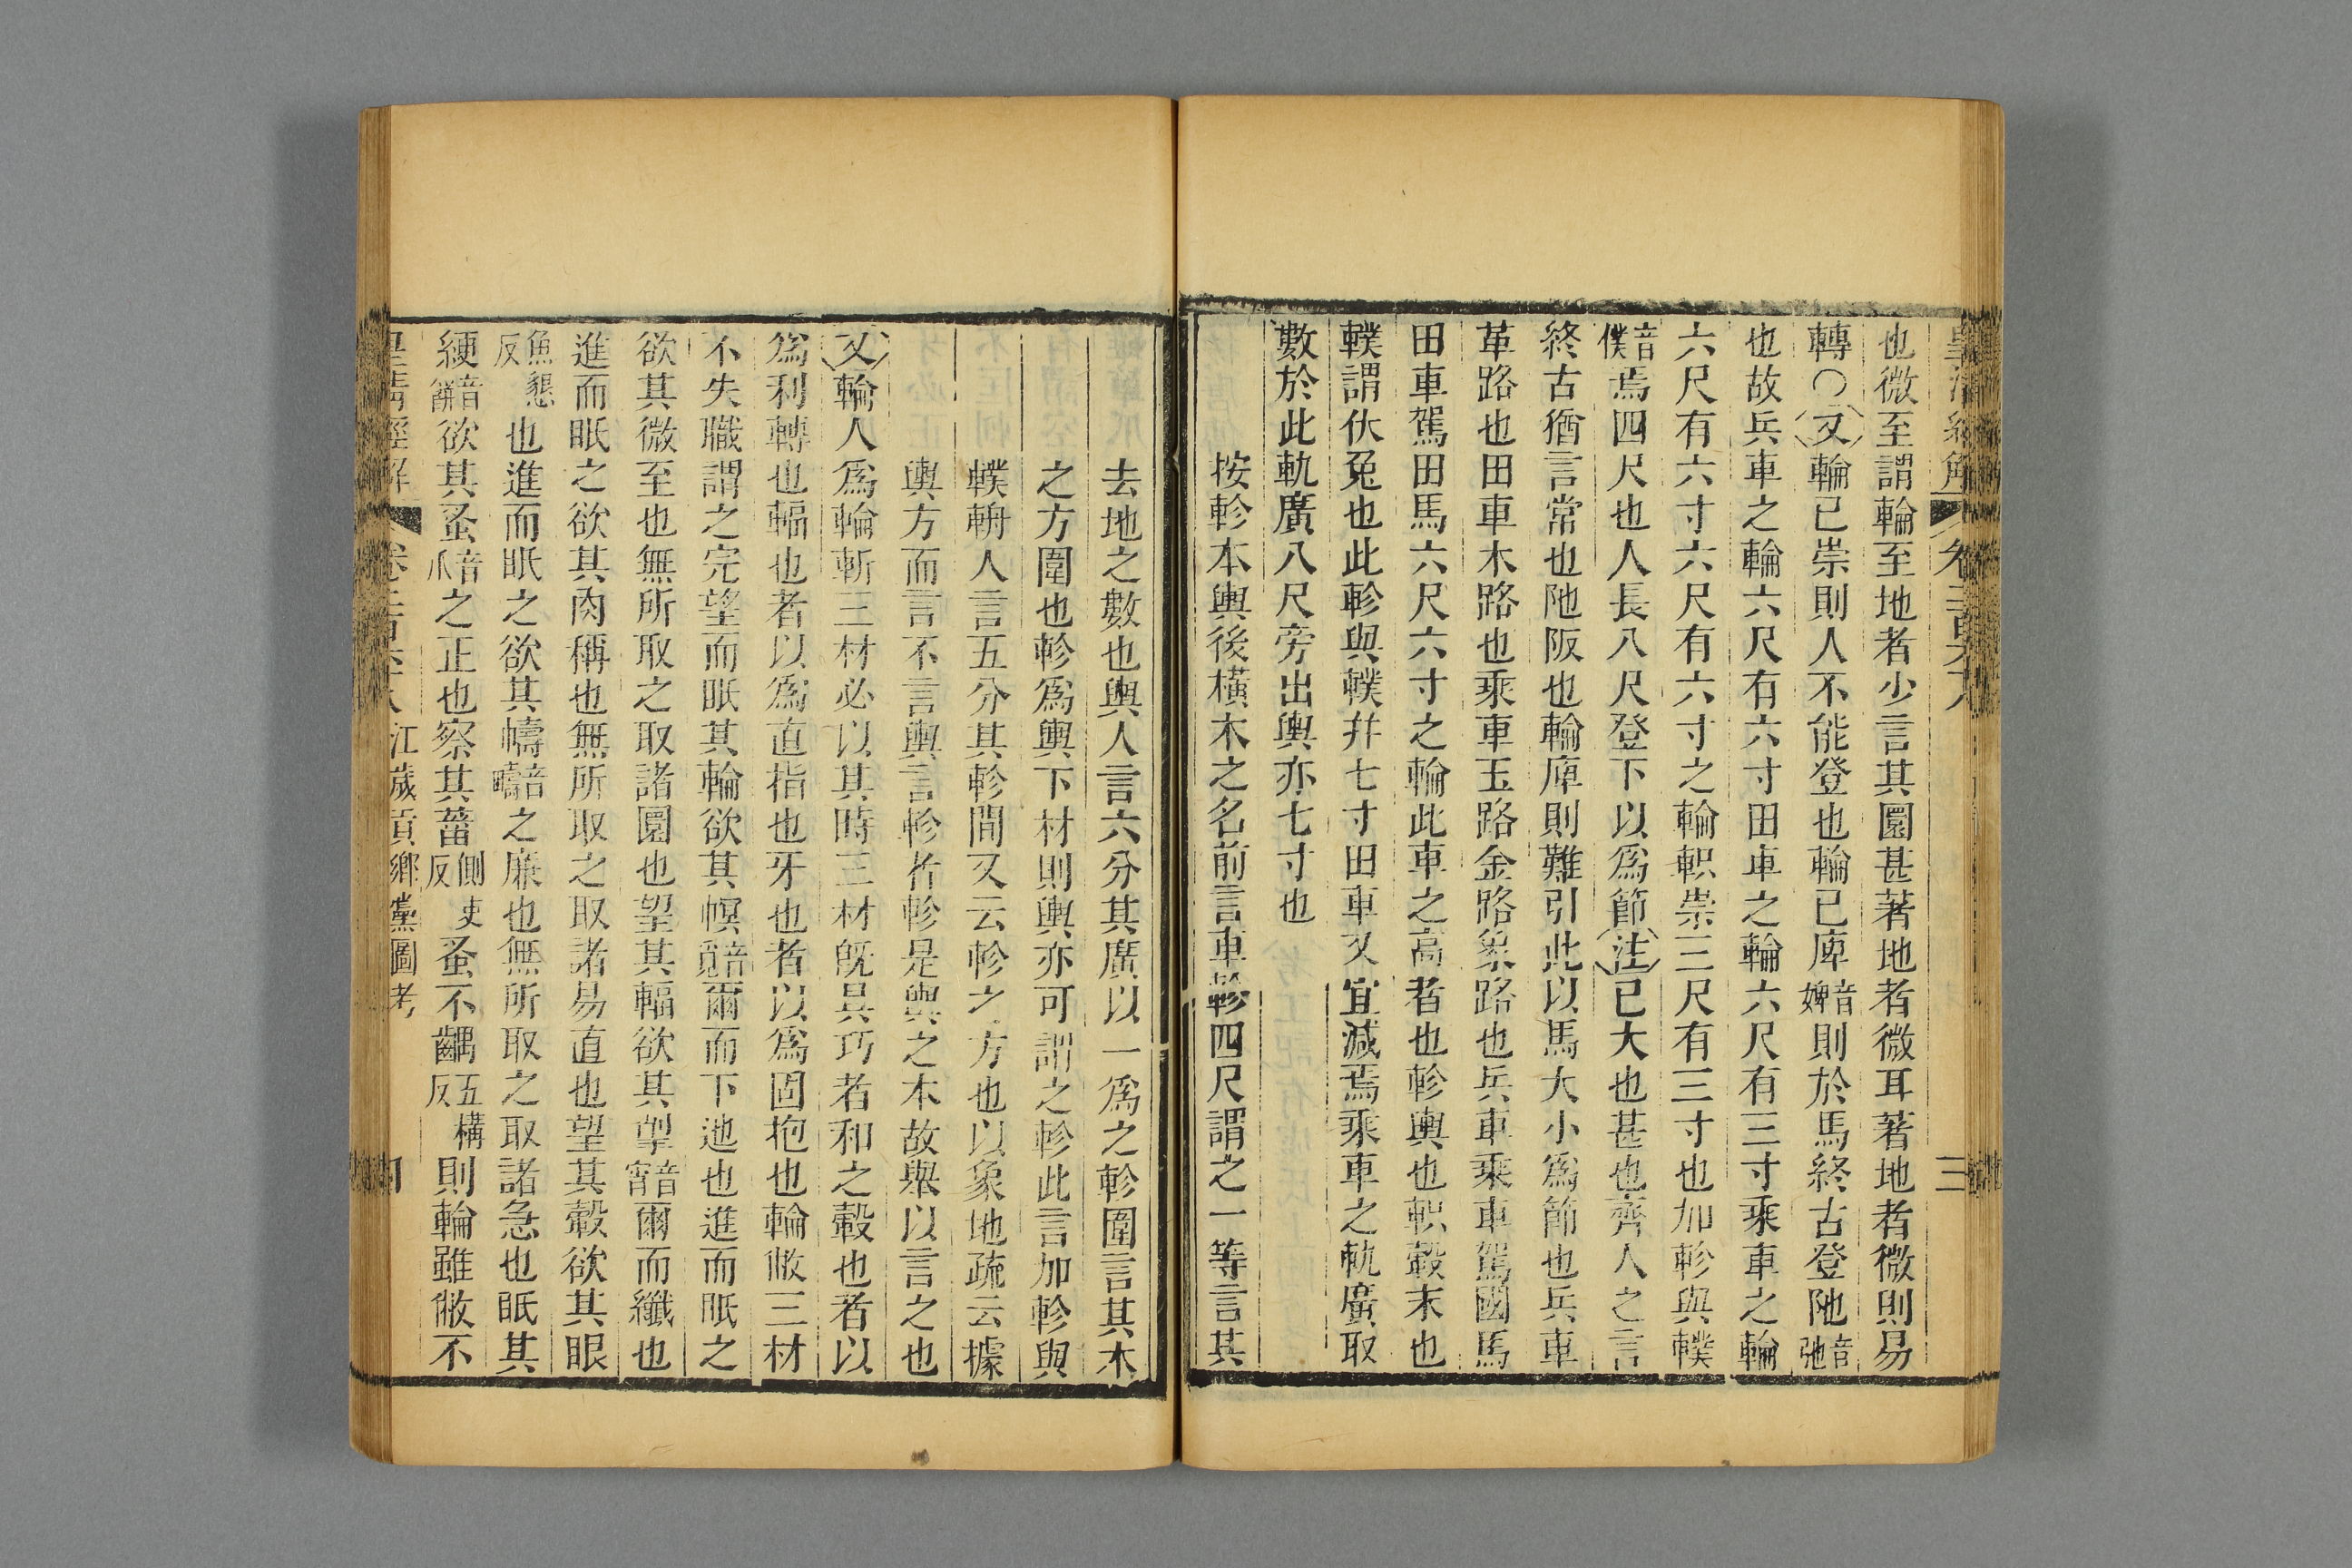 皇清經解 卷二百六十八 三
也微至謂輪至地者少言其圜甚著地者微耳著地者微則易
轉〇又輪已崇則人不能登也輪已庳音婢則於馬終古登阤音弛
也故兵車之輪六尺有六寸田車之輪六尺有三寸乘車之輪
六尺有六寸六尺有六寸之輪軹崇三尺有三寸也加軫與轐
音僕焉四尺也人長八尺登下以爲節注已大也甚也齊人之言
終古猶言常也阤阪也輪庳則難引此以馬大小爲節也兵車
革路也田車木路也乘車玉路金路象路也兵車乘車駕國馬
田車駕田馬六尺六寸之輪此車之高者也軫輿也軹轂末也
轐謂伏兔也此軫與轐幷七寸田車又宜減焉乘車之軌廣取
數於此軌廣八尺旁出輿亦七寸也
按軫本輿後橫木之名前言車軫四尺謂之一等言其
去地之數也輿人言六分其廣以一爲之軫圍言其木
之方圍也軫爲輿下材則輿亦可謂之軫此言加軫與
轐輈人言五分其軫間又云軫之方也以象地疏云據
輿方而言不言輿言軫者軫是輿之本故舉以言之也
又輪人爲輪斬三材必以其時三材旣具巧者和之轂也者以
爲利轉也輻也者以爲直指也牙也者以爲固抱也輪敝三材
不失職謂之完望而眡其輪欲其幎音覓爾而下迆也進而眡之
欲其微至也無所取之取諸圜也望其輻欲其掣音宵爾而纖也
進而眡之欲其肉稱也無所取之取諸易直也望其轂欲其眼
魚懇反也進而眡之欲其幬音疇之廉也無所取之取諸急也眡其
綆音餠欲其蚤音爪之正也察其菑側吏反蚤不齵五構反則輪雖敝不
皇清經解 卷二百六十八 江歲貢鄉黨圖考 四